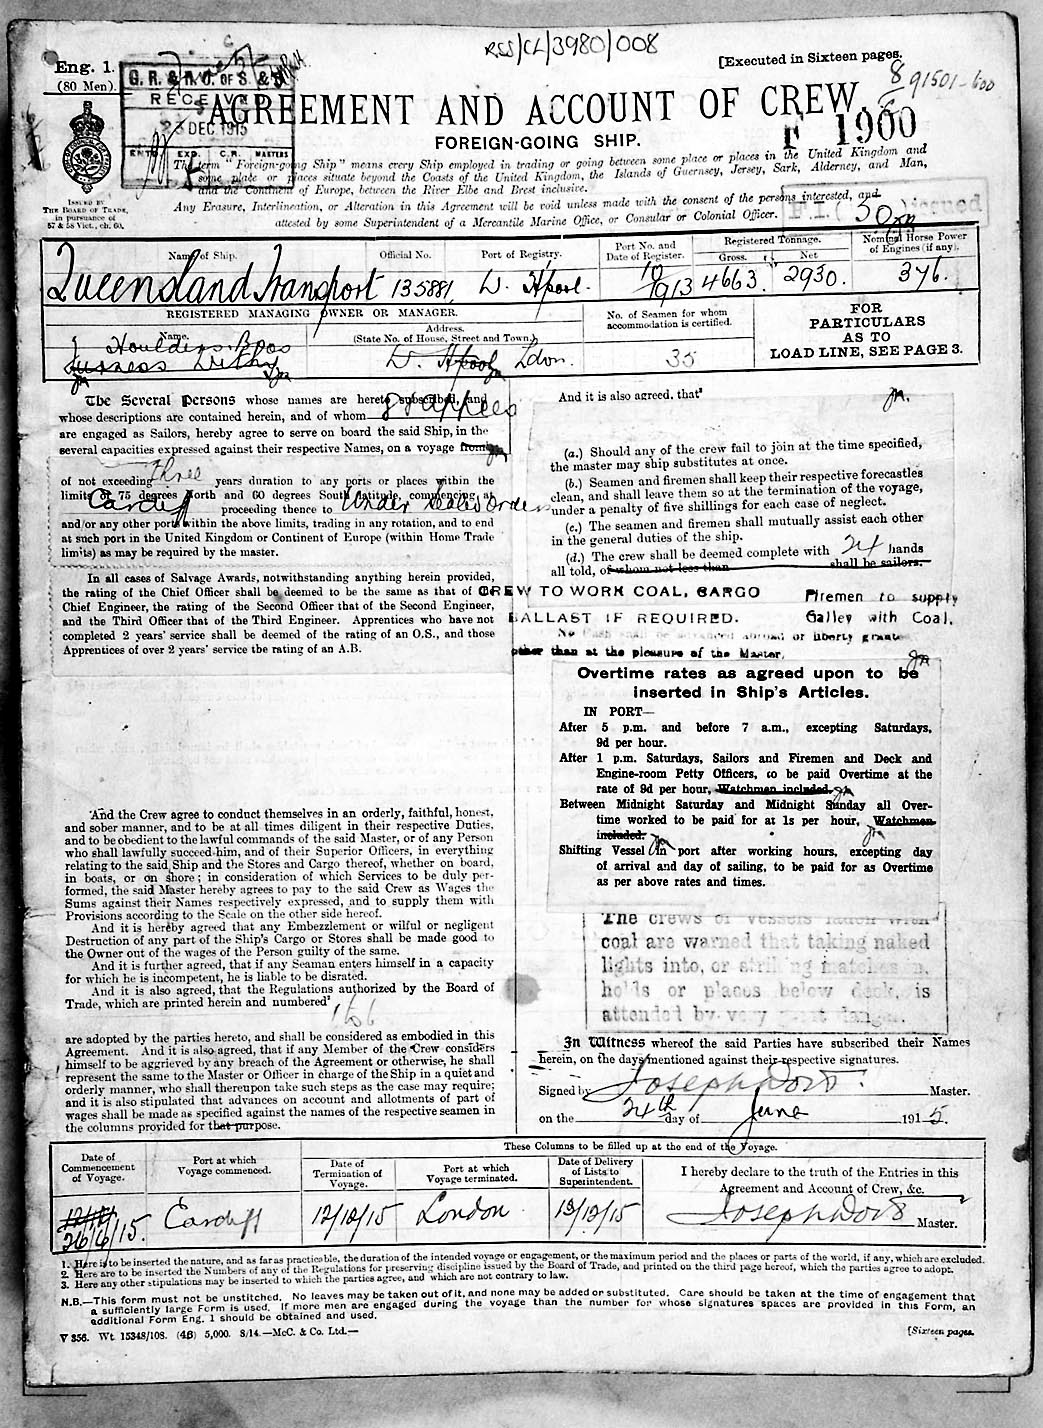 RSS/CL/3980/008
[Executed in Sixteen pages.
Eng. 1.
(80 Men).
G. R. & R. O. OF S. & S
RECEIVED
23 DEC 1915
EXP. C.R. MASTERS
8 91501-600
AGREEMENT AND ACCOUNT OF CREW.
F 1900
FOREIGN-GOING SHIP.
The term "Foreign-going Ship" means every Ship employed in trading or going between some place or places in the United Kingdom and
some place or places situate beyond the Coasts of the United Kingdom, the Islands of Guernsey, Jersey, Sark, Alderney, and Man,
and the Continent of Europe, between the River Elbe and Brest inclusive.
Any Erasure, Interlineation, or Alteration in this Agreement will be void unless made with the consent of the persons interested, and
attested by some Superintendent of a Mercantile Marine Office, or Consular or Colonial Officer.
ISSUED BY
THE BOARD OF TRADE,
in pursuance of
57 & 58 Vict., ch. 60.
issued
Name of Ship. Official No. Port of Registry. Port No. and Date of Register. Registered Tonnage. Gross. Net Nominal Horse Power of Engines (if any).
Queensland Transport 135881. W. Hpool. 10/1913 4663. 2930. 376.
REGISTERED MANAGING OWNER OR MANAGER.
Name. Address. (State No. of House, Street and Town.)
No. of Seamen for whom accommodation is certified.
FOR
PARTICULARS
AS TO
LOAD LINE, SEE PAGE 3.
Houlders Bros
Furness Withy W. Hpool Ldon. 35
The Several Persons whose names are hereto subscribed, and
whose descriptions are contained herein, and of whom 8 rappees
are engaged as Sailors, hereby agree to serve on board the said Ship, in the
several capacities expressed against their respective Names, on a voyage from
of not exceeding three years duration to any ports or places within the
limits of 75 degrees North and 60 degrees South latitude, commencing at
Cardiff proceeding thence to Under Sealed Orders
and/or any other ports within the above limits, trading in any rotation, and to end
at such port in the United Kingdom or Continent of Europe (within Home Trade
limits) as may be required by the master.
In all cases of Salvage Awards, notwithstanding anything herein provided,
the rating of the Chief Officer shall be deemed to be the same as that of the
Chief Engineer, the rating of the Second Officer that of the Second Engineer,
and the Third Officer that of the Third Engineer. Apprentices who have not
completed 2 years' service shall be deemed of the rating of an O.S., and those
Apprentices of over 2 years' service the rating of an A.B.
And the Crew agree to conduct themselves in an orderly, faithful, honest,
and sober manner, and to be at all times diligent in their respective Duties,
and to be obedient to the lawful commands of the said Master, or of any Person
who shall lawfully succeed him, and of their Superior Officers, in everything
relating to the said Ship and the Stores and Cargo thereof, whether on board,
in boats, or on shore; in consideration of which Services to be duly per-
formed, the said Master hereby agrees to pay to the said Crew as Wages the
Sums against their Names respectively expressed, and to supply them with
Provisions according to the Scale on the other side hereof.
And it is hereby agreed that any Embezzlement or wilful or negligent
Destruction of any part of the Ship's Cargo or Stores shall be made good to
the Owner out of the wages of the Person guilty of the same.
And it is further agreed, that if any Seaman enters himself in a capacity
for which he is incompetent, he is liable to be disrated.
And it is also agreed, that the Regulations authorized by the Board of
Trade, which are printed herein and numbered²
1 to 6
are adopted by the parties hereto, and shall be considered as embodied in this
Agreement. And it is also agreed, that if any Member of the Crew considers
himself to be aggrieved by any breach of the Agreement or otherwise, he shall
represent the same to the Master or Officer in charge of the Ship in a quiet and
orderly manner, who shall thereupon take such steps as the case may require;
and it is also stipulated that advances on account and allotments of part of
wages shall be made as specified against the names of the respective seamen in
the columns provided for that purpose.
And it is also agreed, that³
(a.) Should any of the crew fail to join at the time specified,
the master may ship substitutes at once.
(b.) Seamen and firemen shall keep their respective forecastles
clean, and shall leave them so at the termination of the voyage,
under a penalty of five shillings for each case of neglect.
(c.) The seamen and firemen shall mutually assist each other
in the general duties of the ship.
(d.) The crew shall be deemed complete with 24 hands
all told, of whom not less than shall be sailors.
CREW TO WORK COAL, CARGO
BALLAST IF REQUIRED.
Firemen to supply
Galley with Coal.
No Cash shall be advanced abroad or liberty grante
other than at the pleasure of the Master.
Overtime rates as agreed upon to be
inserted in Ship's Articles.
IN PORT—
After 5 p.m. and before 7 a.m., excepting Saturdays,
9d per hour.
After 1 p.m. Saturdays, Sailors and Firemen and Deck and
Engine-room Petty Officers, to be paid Overtime at the
rate of 9d per hour, Watchmen included.
Between Midnight Saturday and Midnight Sunday all Over-
time worked to be paid for at 1s per hour, Watchmen
included.
Shifting Vessel in port after working hours, excepting day
of arrival and day of sailing, to be paid for as Overtime
as per above rates and times.
The crews of vessels laden with
coal are warned that taking naked
lights into, or striking matches in,
holds or places below deck, is
attended by very great danger.
In Witness whereof the said Parties have subscribed their Names
herein, on the days mentioned against their respective signatures.
Signed by Master.
on the 24th day of June 1915.
These Columns to be filled up at the end of the Voyage.
Date of Commencement of Voyage. Port at which Voyage commenced. Date of Termination of Voyage. Port at which Voyage terminated. Date of Delivery of Lists to Superintendent. I hereby declare to the truth of the Entries in this Agreement and Account of Crew, &c.
26/6/15. Cardiff 12/12/15 London 13/12/15 Master.
1. Here is to be inserted the nature, and as far as practicable, the duration of the intended voyage or engagement, or the maximum period and the places or parts of the world, if any, which are excluded.
2. Here are to be inserted the Numbers of any of the Regulations for preserving discipline issued by the Board of Trade, and printed on the third page hereof, which the parties agree to adopt.
3. Here any other stipulations may be inserted to which the parties agree, and which are not contrary to law.
N.B.—This form must not be unstitched. No leaves may be taken out of it, and none may be added or substituted. Care should be taken at the time of engagement that
a sufficiently large Form is used. If more men are engaged during the voyage than the number for whose signatures spaces are provided in this Form, an
additional Form Eng. 1 should be obtained and used.
V 356. Wt. 15348/108. (46) 5,000. 8/14.—McC. & Co. Ltd.—
[Sixteen pages.